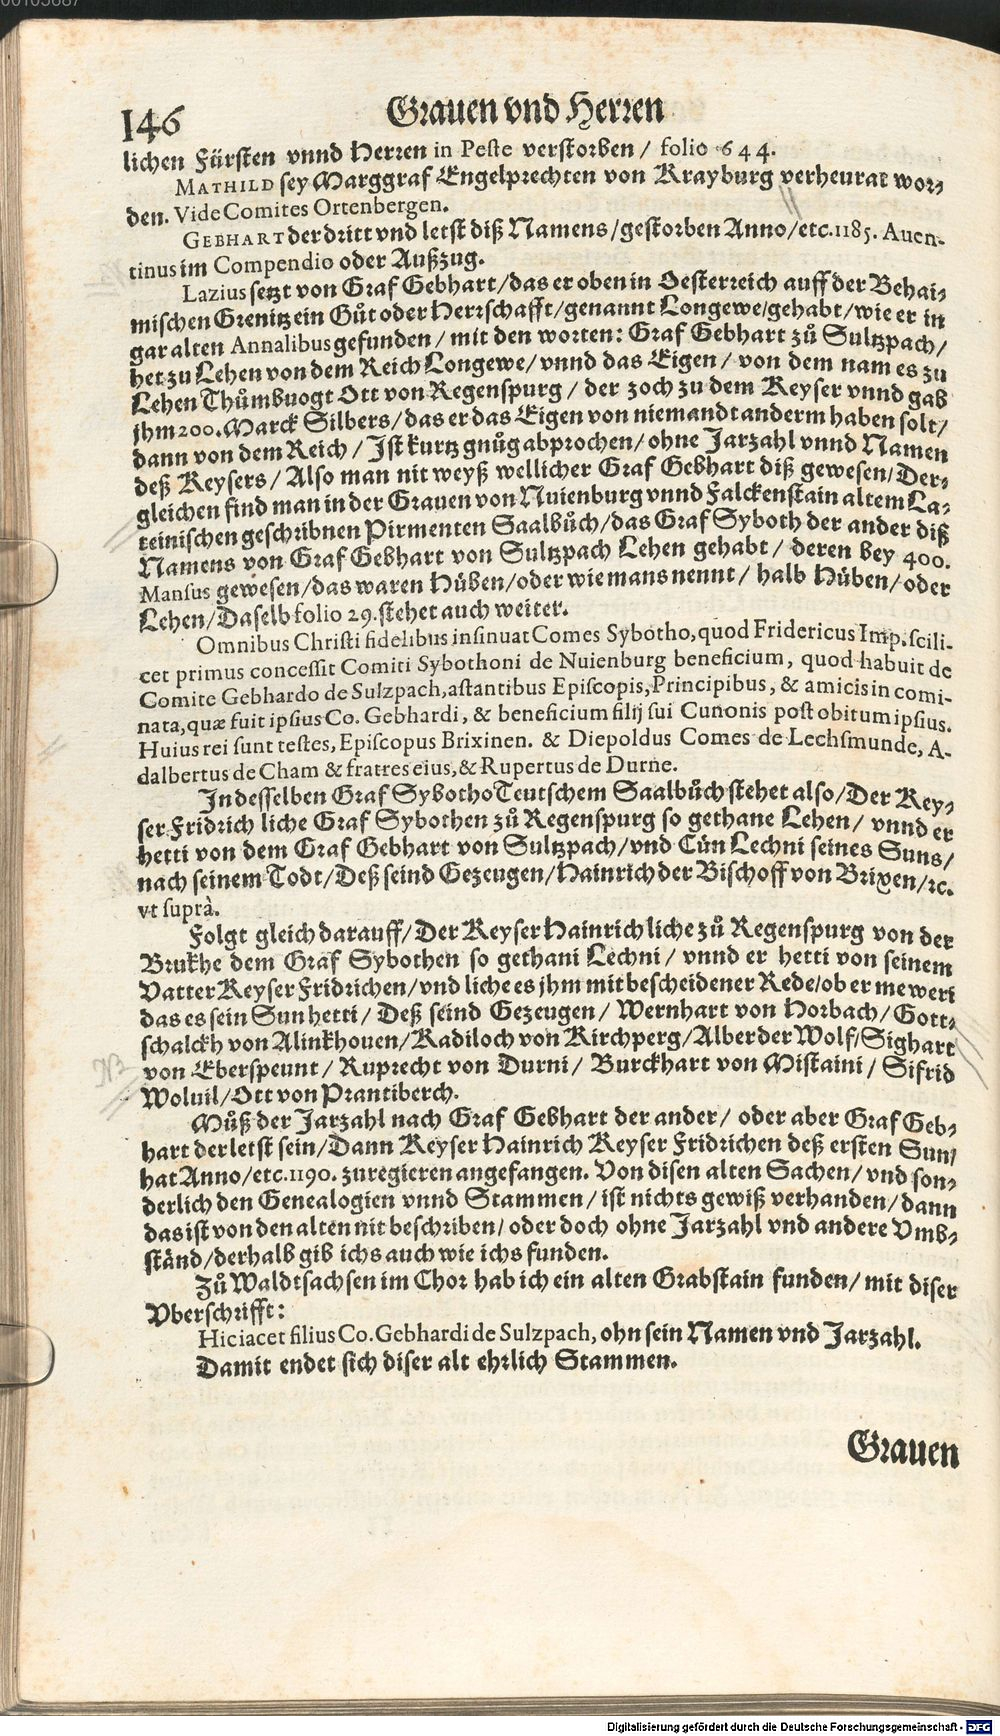 146
Grauen vnd Herren
lichen Fürsten vnnd Herren in Peste verstorben / folio 644.
MATHILD sey Marggraf Engelprechten von Krayburg verheurat wor⸗
den. Vide Comites Ortenbergen.
GEBHART der dritt vnd letst diß Namens / gestorben Anno / etc. 1185. Auen-
tinus im Compendio oder Außzug.
Lazius setzt von Graf Gebhart / das er oben in Oesterreich auff der Behai⸗
mischen Grenitz ein Gůt oder Herrschafft / genannt Longewe / gehabt / wie er in
gar alten Annalibus gefunden / mit den worten: Graf Gebhart zů Sultzpach /
het zu Lehen von dem Reich Longewe / vnnd das Eigen / von dem nam es zu
Lehen Thůmbuogt Ott von Regenspurg / der zoch zu dem Keyser vnnd gab
jhm 200. Marck Silbers / das er das Eigen von niemandt anderm haben solt /
dann von dem Reich / Ist kurtz gnůg abprochen / ohne Jarzahl vnnd Namen
deß Keysers / Also man nit weyß wellicher Graf Gebhart diß gewesen / Der⸗
gleichen find man in der Grauen von Nuienburg vnnd Falckenstain altem La⸗
teinischen geschribnen Pirmenten Saalbůch / das Graf Syboth der ander diß
Namens von Graf Gebhart von Sultzpach Lehen gehabt / deren bey 400.
Mansus gewesen / das waren Hůben / oder wie mans nennt / halb Hůben / oder
Lehen / Daselb folio 29. stehet auch weiter.
Omnibus Christi fidelibus insinuat Comes Sybotho, quod Fridericus Imp. scili-
cet primus concessit Comiti Sybothoni de Nuienburg beneficium, quod habuit de
Comite Gebhardo de Sulzpach, astantibus Episcopis, Principibus, & amicis in comi-
nata, quæ fuit ipsius Co. Gebhardi, & beneficium filij sui Cunonis post obitum ipsius.
Huius rei sunt testes, Episcopus Brixinen. & Diepoldus Comes de Lechsmunde, A-
dalbertus de Cham & fratres eius, & Rupertus de Durne.
In desselben Graf Sybotho Teutschem Saalbůch stehet also / Der Key⸗
ser Fridrich liche Graf Sybothen zů Regenspurg so gethane Lehen / vnnd er
hetti von dem Graf Gebhart von Sultzpach / vnd Cůn Lechni seines Suns /
nach seinem Todt / Deß seind Gezeugen / Hainrich der Bischoff von Brixen / ꝛc.
vt suprà.
Folgt gleich darauff / Der Keyser Hainrich liche zů Regenspurg von der
Brukhe dem Graf Sybothen so gethani Lechni / vnnd er hetti von seinem
Vatter Keyser Fridrichen / vnd liche es jhm mit bescheidener Rede / ob er me weri
das es sein Sun hetti / Deß seind Gezeugen / Wernhart von Horbach / Gott⸗
schalckh von Alinkhouen / Kadiloch von Kirchperg / Alber der Wolf / Sighart
von Eberspeunt / Ruprecht von Durni / Burckhart von Mistaini / Sifrid
Woluil / Ott von Prantiberch.
Můß der Jarzahl nach Graf Gebhart der ander / oder aber Graf Geb⸗
hart der letst sein / Dann Keyser Hainrich Keyser Fridrichen deß ersten Sun /
hat Anno / etc. 1190. zuregieren angefangen. Von disen alten Sachen / vnd son⸗
derlich den Genealogien vnnd Stammen / ist nichts gewiß verhanden / dann
das ist von den alten nit beschriben / oder doch ohne Jarzahl vnd andere Vmb⸗
ständ / derhalb gib ichs auch wie ichs funden.
Zů Waldtsachsen im Chor hab ich ein alten Grabstain funden / mit diser
Vberschrifft:
Hic iacet filius Co. Gebhardi de Sulzpach, ohn sein Namen vnd Jarzahl.
Damit endet sich diser alt ehrlich Stammen.
Grauen
Digitalisierung gefördert durch die Deutsche Forschungsgemeinschaft - DFG